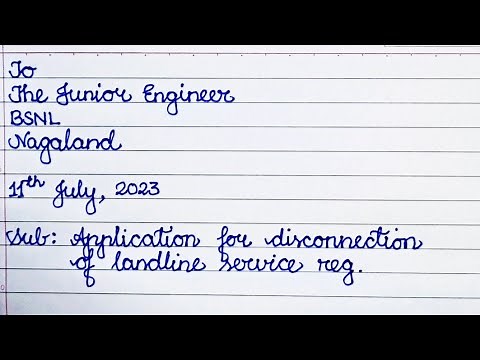 To
The Junior Engineer
BSNL
Nagaland
11th July, 2023
Sub: Application for disconnection
of landline service reg.